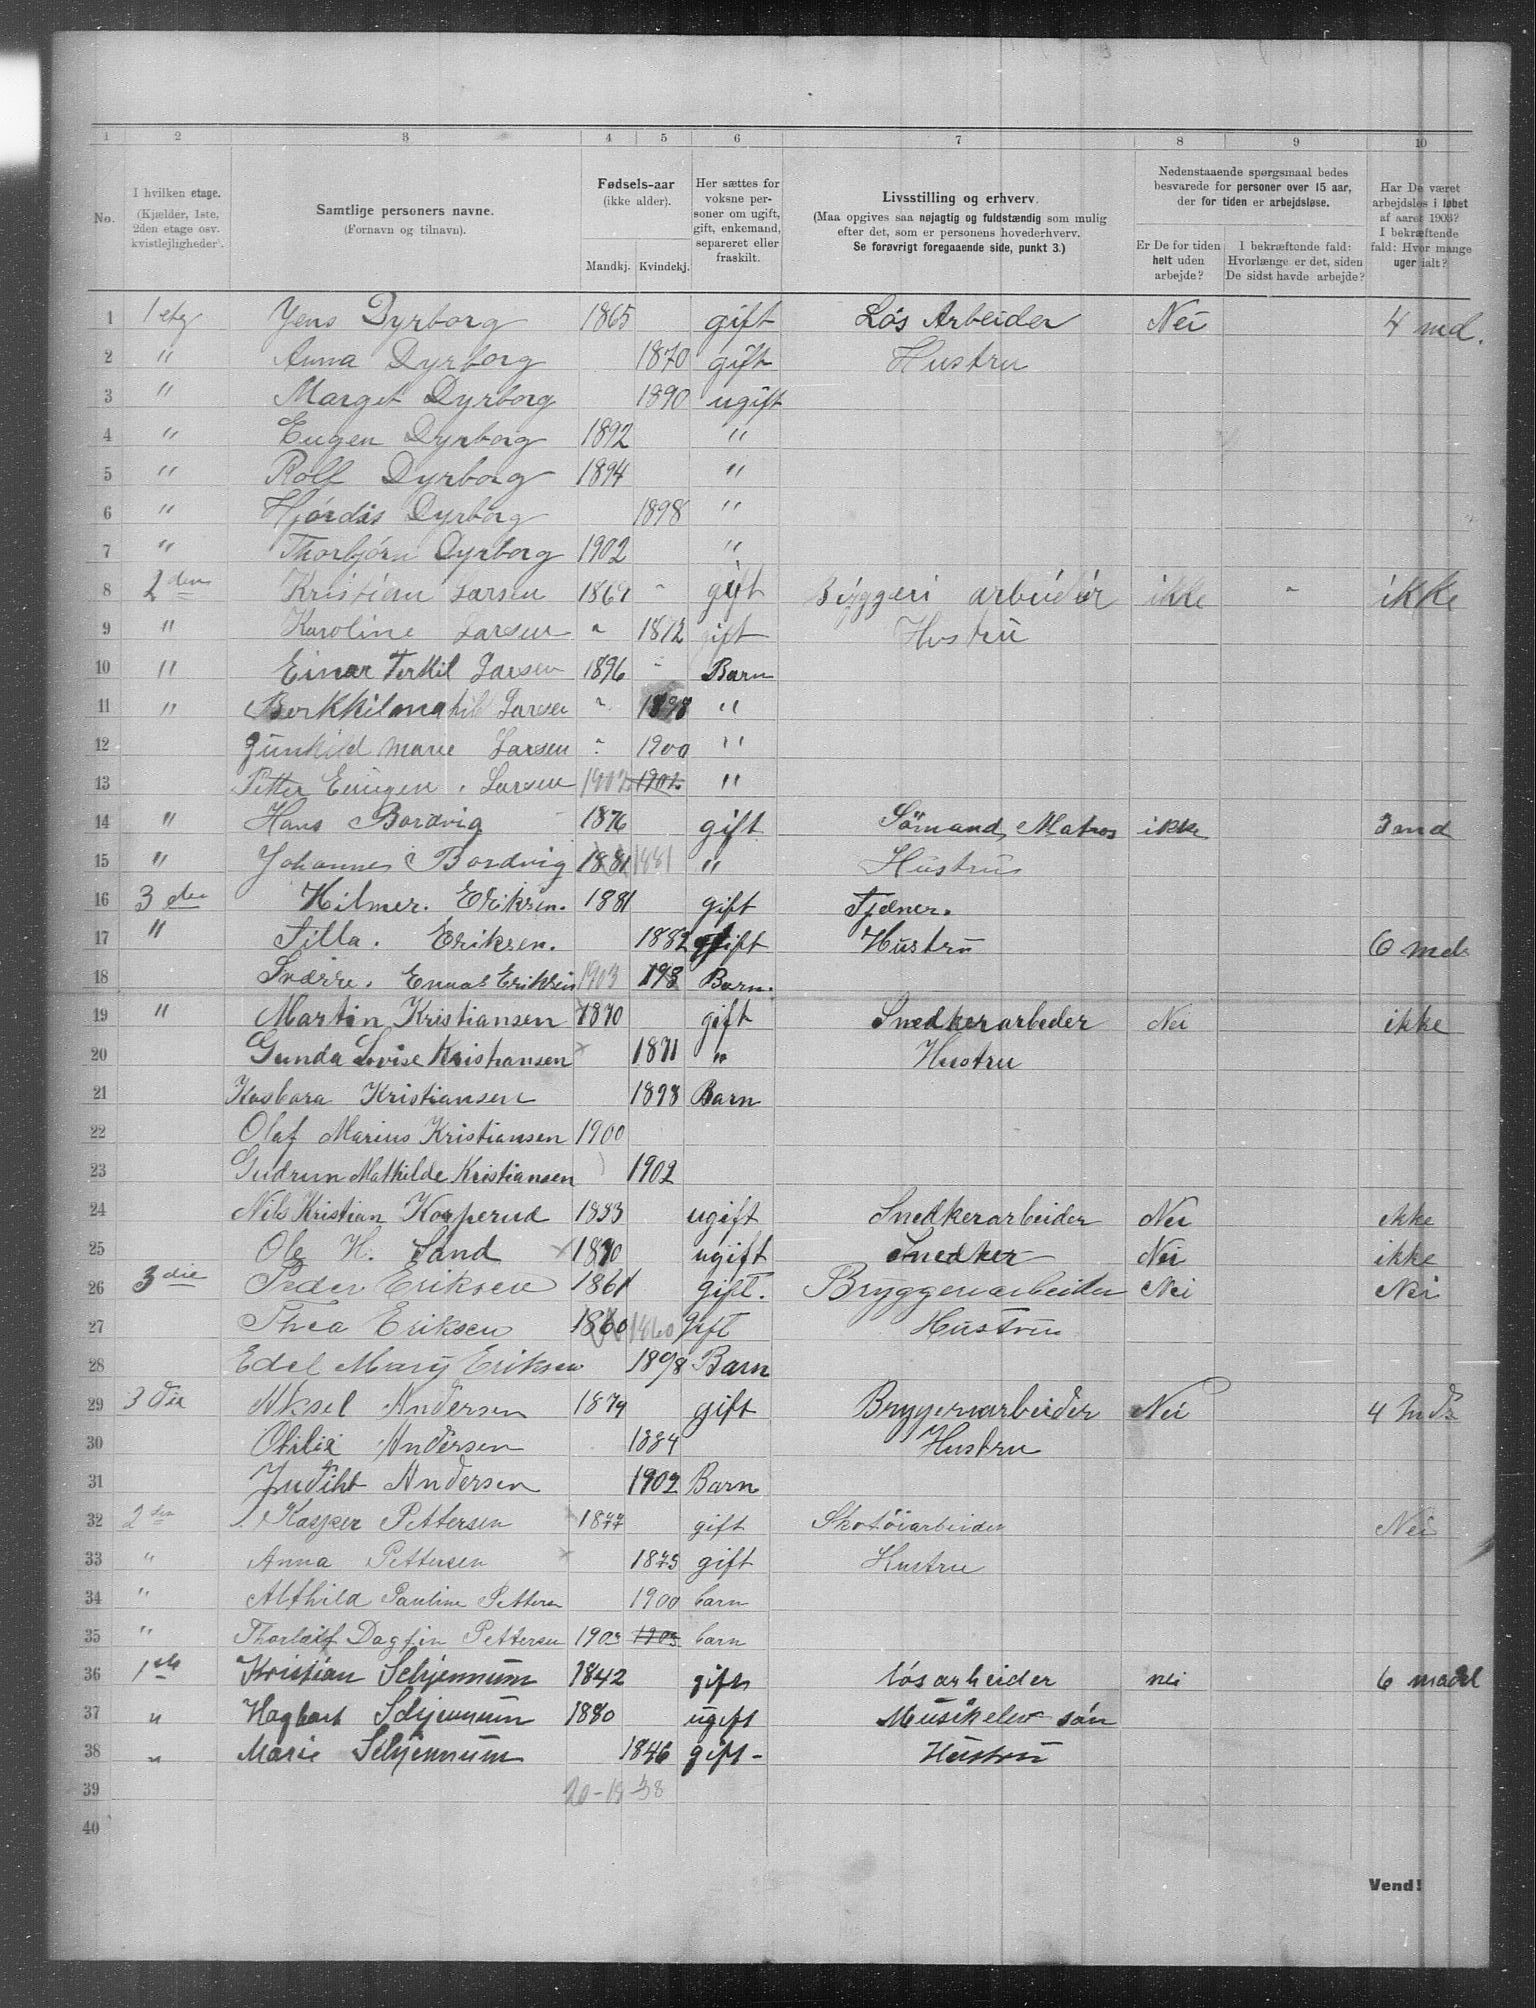 1 2 3 4 5 6 7 8 9 10
No.
I hvilken etage. (Kjælder, 1ste, 2den etage osv. kvistlejligheder).
Samtlige personers navne. (Fornavn og tilnavn).
Fødsels-aar (ikke alder). Mandkj. Kvindekj.
Her sættes for voksne personer om ugift, gift, enkemand, separeret eller fraskilt.
Livsstilling og erhverv. (Maa opgives saa nøjagtig og fuldstændig som mulig efter det, som er personens hovederhverv. Se forøvrigt foregaaende side, punkt 3.)
Nedenstaaende spørgsmaal bedes besvarede for personer over 15 aar, der for tiden er arbejdsløse.
Er De for tiden helt uden arbejde?
I bekræftende fald: Hvorlænge er det, siden De sidst havde arbejde?
Har De været arbejdsløs i løbet af aaret 1903? I bekræftende fald: Hvor mange uger ialt?
1 1 etg Jens Dyrborg 1865 gift Løs Arbeider Nei 4 md.
2 " Anna Dyrborg 1870 gift Hustru
3 " Marget Dyrborg 1890 ugift
4 " Eugen Dyrborg 1892 "
5 " Rolf Dyrborg 1894 "
6 " Hjørdis Dyrborg 1898 "
7 " Thorbjørn Dyrborg 1902 "
8 2den Kristian Larsen 1869 " gift Byggeri arbeidir ikke " ikke
9 " Karoline Larsen " 1872 gift Hustru
10 " Einar Terkil Larsen 1896 " Barn
11 " Larsen " 1898 "
12 Gunhild Marie Larsen " 1900 "
13 Petter Eugen Larsen 1902 1902 "
14 " Hans Bordvig 1876 gift Sömand, Matros ikke 3 md
15 " Johannes Bordvig 1881 1881 " Hustru
16 3die Hilmer. Eriksen. 1881 gift Tjener.
17 " Silla. Eriksen. 1882 gift Hustru 6 md
18 Sværre. Eriksen 1903 Barn.
19 " Martin Kristiansen 1870 gift Snedkerarbeder Nei ikke
20 Gunda Lovise Kristiansen 1871 " Hustru
21 Kasbara Kristiansen 1898 Barn
22 Olaf Marius Kristiansen 1900
23 Gudrun Mathilde Kristiansen 1902
24 Nils Kristian Korperud 1883 ugift Snedkerarbeider Nei ikke
25 Ole H. Sand 1870 ugift Snedker Nei ikke
26 3die Peder Eriksen 1861 gift. Bryggeriarbeider Nei Nei
27 Thea Eriksen 1860 1860 Gift Hustru
28 Edel Mary Eriksen 1898 Barn
29 3die Aksel Andersen 1879 gift Bryggeriarbeider Nei 4 Mdr
30 Otilie Andersen 1884 Hustru
31 Judiht Andersen 1902 Barn
32 2den Kasper Pettersen 1877 gift Skotöiarbeider Nei
33 " Anna Pettersen 1875 gift Hustru
34 " Alfhild Pauline Pettersen 1900 barn
35 " Thorleif Dagfin Pettersen 1903 1903 barn
36 1ste Kristian Schjennum 1842 gift løsarbeider nei 6
37 " Hagbart Schjennum 1880 ugift Musikelev søn
38 " Marie Schjennum 1846 gift- Hustru
39 20-18-38
40
Vend!